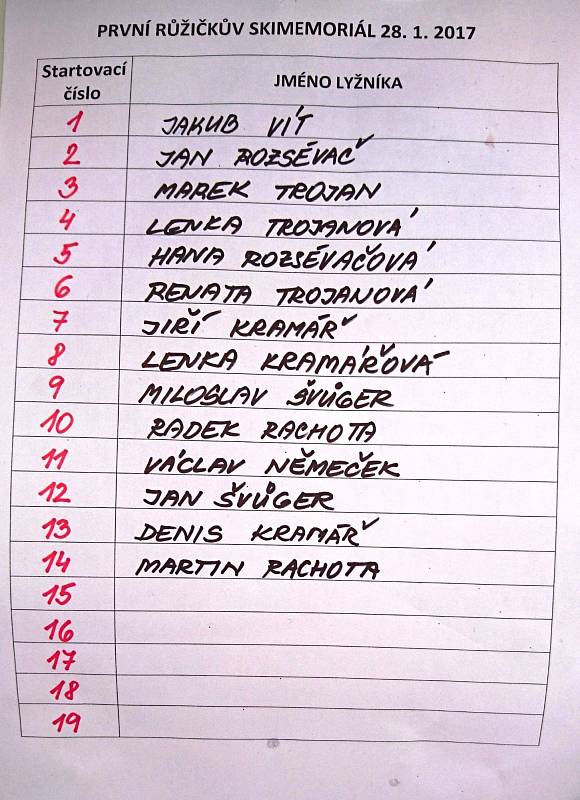 PRVNÍ RŮŽIČKŮV SKIMEMORIÁL 28. 1. 2017
Startovací číslo JMÉNO LYŽNÍKA
1 JAKUB VÍT
2 JAN ROZSÉVAČ
3 MAREK TROJAN
4 LENKA TROJANOVÁ
5 HANA ROZSÉVAČOVÁ
6 RENATA TROJANOVÁ
7 JIŘÍ KRAMÁŘ
8 LENKA KRAMÁŘOVÁ
9 MILOSLAV ŠVŮGER
10 RADEK RACHOTA
11 VÁCLAV NĚMEČEK
12 JAN ŠVŮGER
13 DENIS KRAMÁŘ
14 MARTIN RACHOTA
15
16
17
18
19